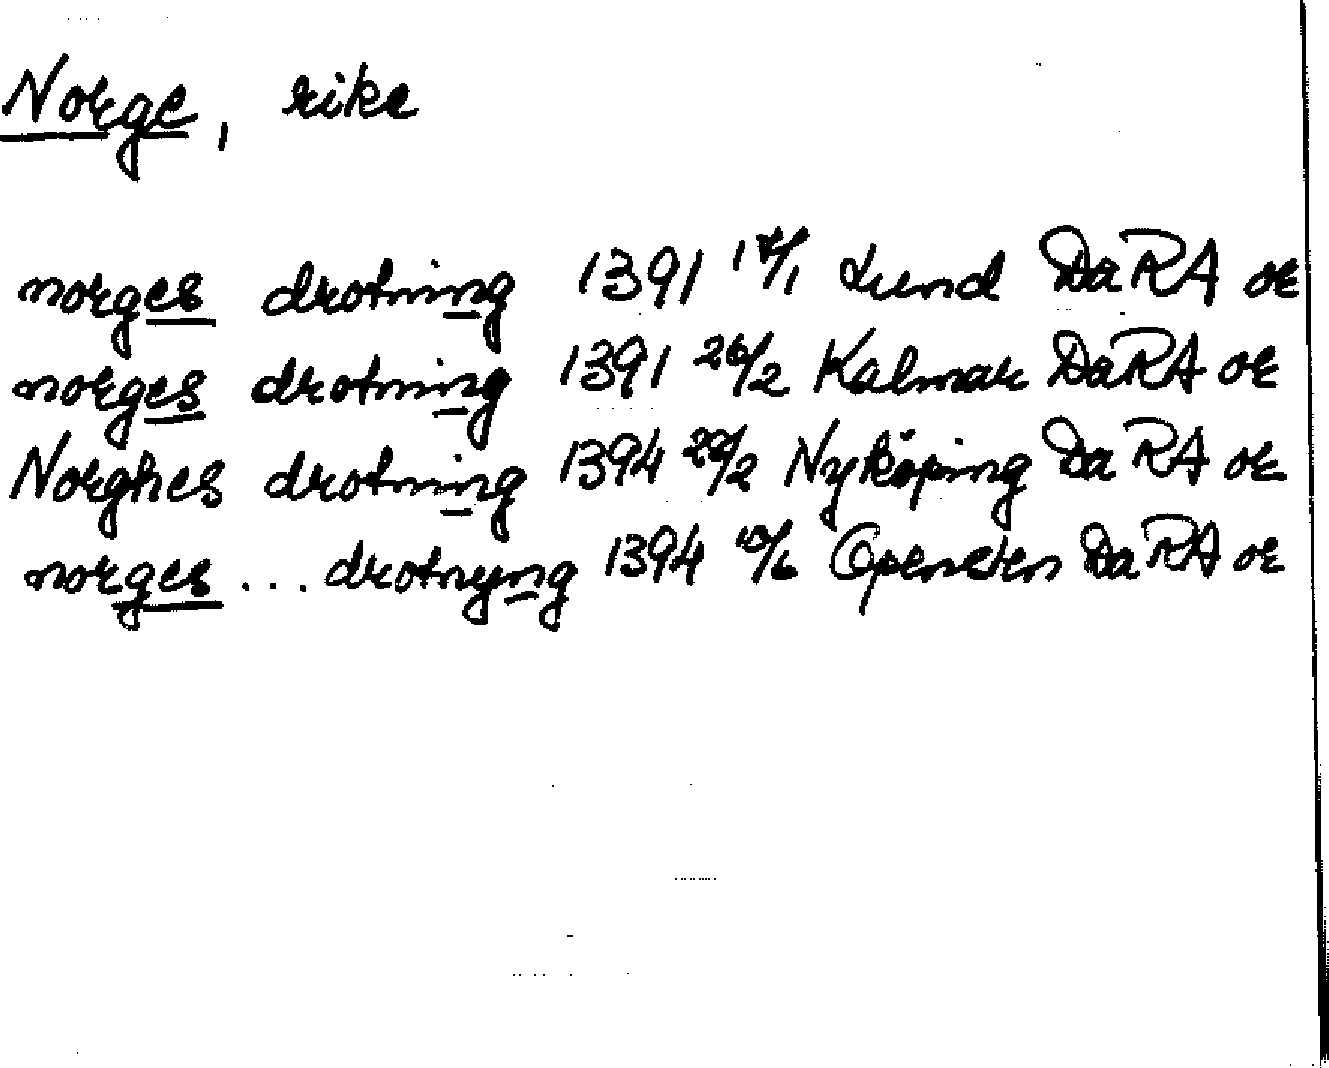 Norge, rike
norges drotning 1391 17/1 Lund DaRA or
norges drotning 1391 26/2 Kalmar DaRA or
Norghes drotning 1394 22/2 Nyköping DaRA or
norges ... drotnyng 1394 10/6 DaRA or